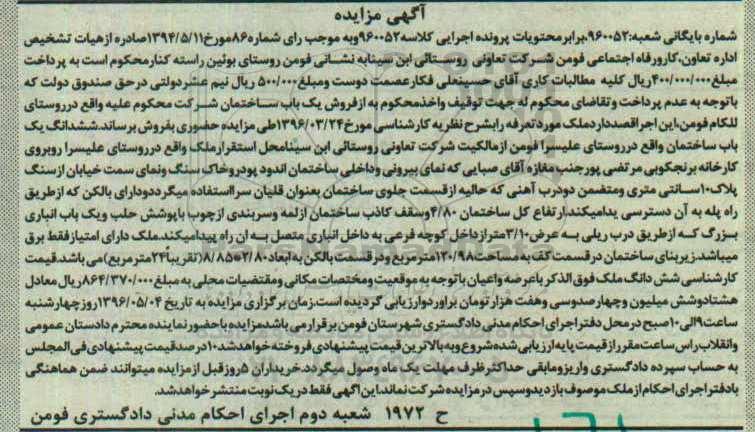 آگهی مزایده
شماره بایگانی شعبه:۹۶۰۰۵۲،برابرمحتویات پرونده اجرایی کلاسه۹۶۰۰۵۲وبه موجب رای شماره۸۶مورخ۱۳۹۴/۵/۱۱صادره ازهیات تشخیص
اداره تعاون،کارورفاه اجتماعی فومن شرکت تعاونی روستائی ابن سینابه نشانی فومن روستای بوئین راسته کنارمحکوم است به پرداخت
مبلغ۴۰۰/۰۰۰/۰۰۰ریال کلیه مطالبات کاری آقای حسینعلی فکارعصمت دوست ومبلغ۵۰۰/۰۰۰ ریال نیم عشردولتی درحق صندوق دولت که
باتوجه به عدم پرداخت وتقاضای محکوم له جهت توقیف واخذمحکوم به ازفروش یک باب ساختمان شرکت محکوم علیه واقع درروستای
للکام فومن،این اجراقصدداردملک موردتعرفه رابشرح نظریه کارشناسی مورخ۱۳۹۶/۰۳/۲۴طی مزایده حضوری بفروش برساند.ششدانگ یک
باب ساختمان واقع درروستای علیسرا فومن ازمالکیت شرکت تعاونی روستائی ابن سینامحل استقرارملک واقع درروستای علیسرا روبروی
کارخانه برنجکوبی مرتضی پورجنب مغازه آقای صبایی که نمای بیرونی وداخلی ساختمان اندود پودروخاک سنگ ونمای سمت خیابان ازسنگ
پلاک۱۰سانتی متری ومتضمن دودرب آهنی که حالیه ازقسمت جلوی ساختمان بعنوان قلیان سرااستفاده میگرددودارای بالکن که ازطریق
راه پله به آن دسترسی پدامیکند.ارتفاع کل ساختمان ۴/۸۰وسقف کاذب ساختمان ازلمه وسربندی ازچوب باپوشش حلب ویک باب انباری
بزرگ که ازطریق درب ریلی به عرض۳/۱۰متراز داخل کوچه فرعی به داخل انباری متصل به ان راه پیدامیکند.ملک دارای امتیازفقط برق
میباشد.زیربنای ساختمان درقسمت کف به مساحت۱۲۰/۹۸مترمربع ودرقسمت بالکن به ابعاد۲/۸۰*۸/۸۵(تقریبا۲۴مترمربع)می باشد.قیمت
کارشناسی شش دانگ ملک فوق الذکرباعرصه واعیان باتوجه به موقعیت ومختصات مکانی ومقتضیات محلی به مبلغ۸۶۴/۳۷۰/۰۰۰ریال معادل
هشتادوشش میلیون وچهارصدوسی وهفت هزارتومان براوردوارزیابی گردیده است.زمان برگزاری مزایده به تاریخ ۱۳۹۶/۰۵/۰۴روزچهارشنبه
ساعت۹الی۱۰صبح درمحل دفتراجرای احکام مدنی دادگستری شهرستان فومن برقرارمی باشد.مزایده باحضورنماینده محترم دادستان عمومی
وانقلاب راس ساعت مقررازقیمت پایه ارزیابی شده شروع وبه بالاترین قیمت پیشنهادی فروخته خواهدشد.۱۰درصدقیمت پیشنهادی فی المجلس
به حساب سپرده دادگستری واریزومابقی حداکثرظرف مهلت یک ماه وصول میگردد.خریداران ۵روزقبل ازمزایده میتوانند ضمن هماهنگی
بادفتراجرای احکام ازملک موصوف بازدیدوسپس درمزایده شرکت نمانداین آگهی فقط دریک نوبت منتشرخواهدشد.
ح ۱۹۷۲ شعبه دوم اجرای احکام مدنی دادگستری فومن